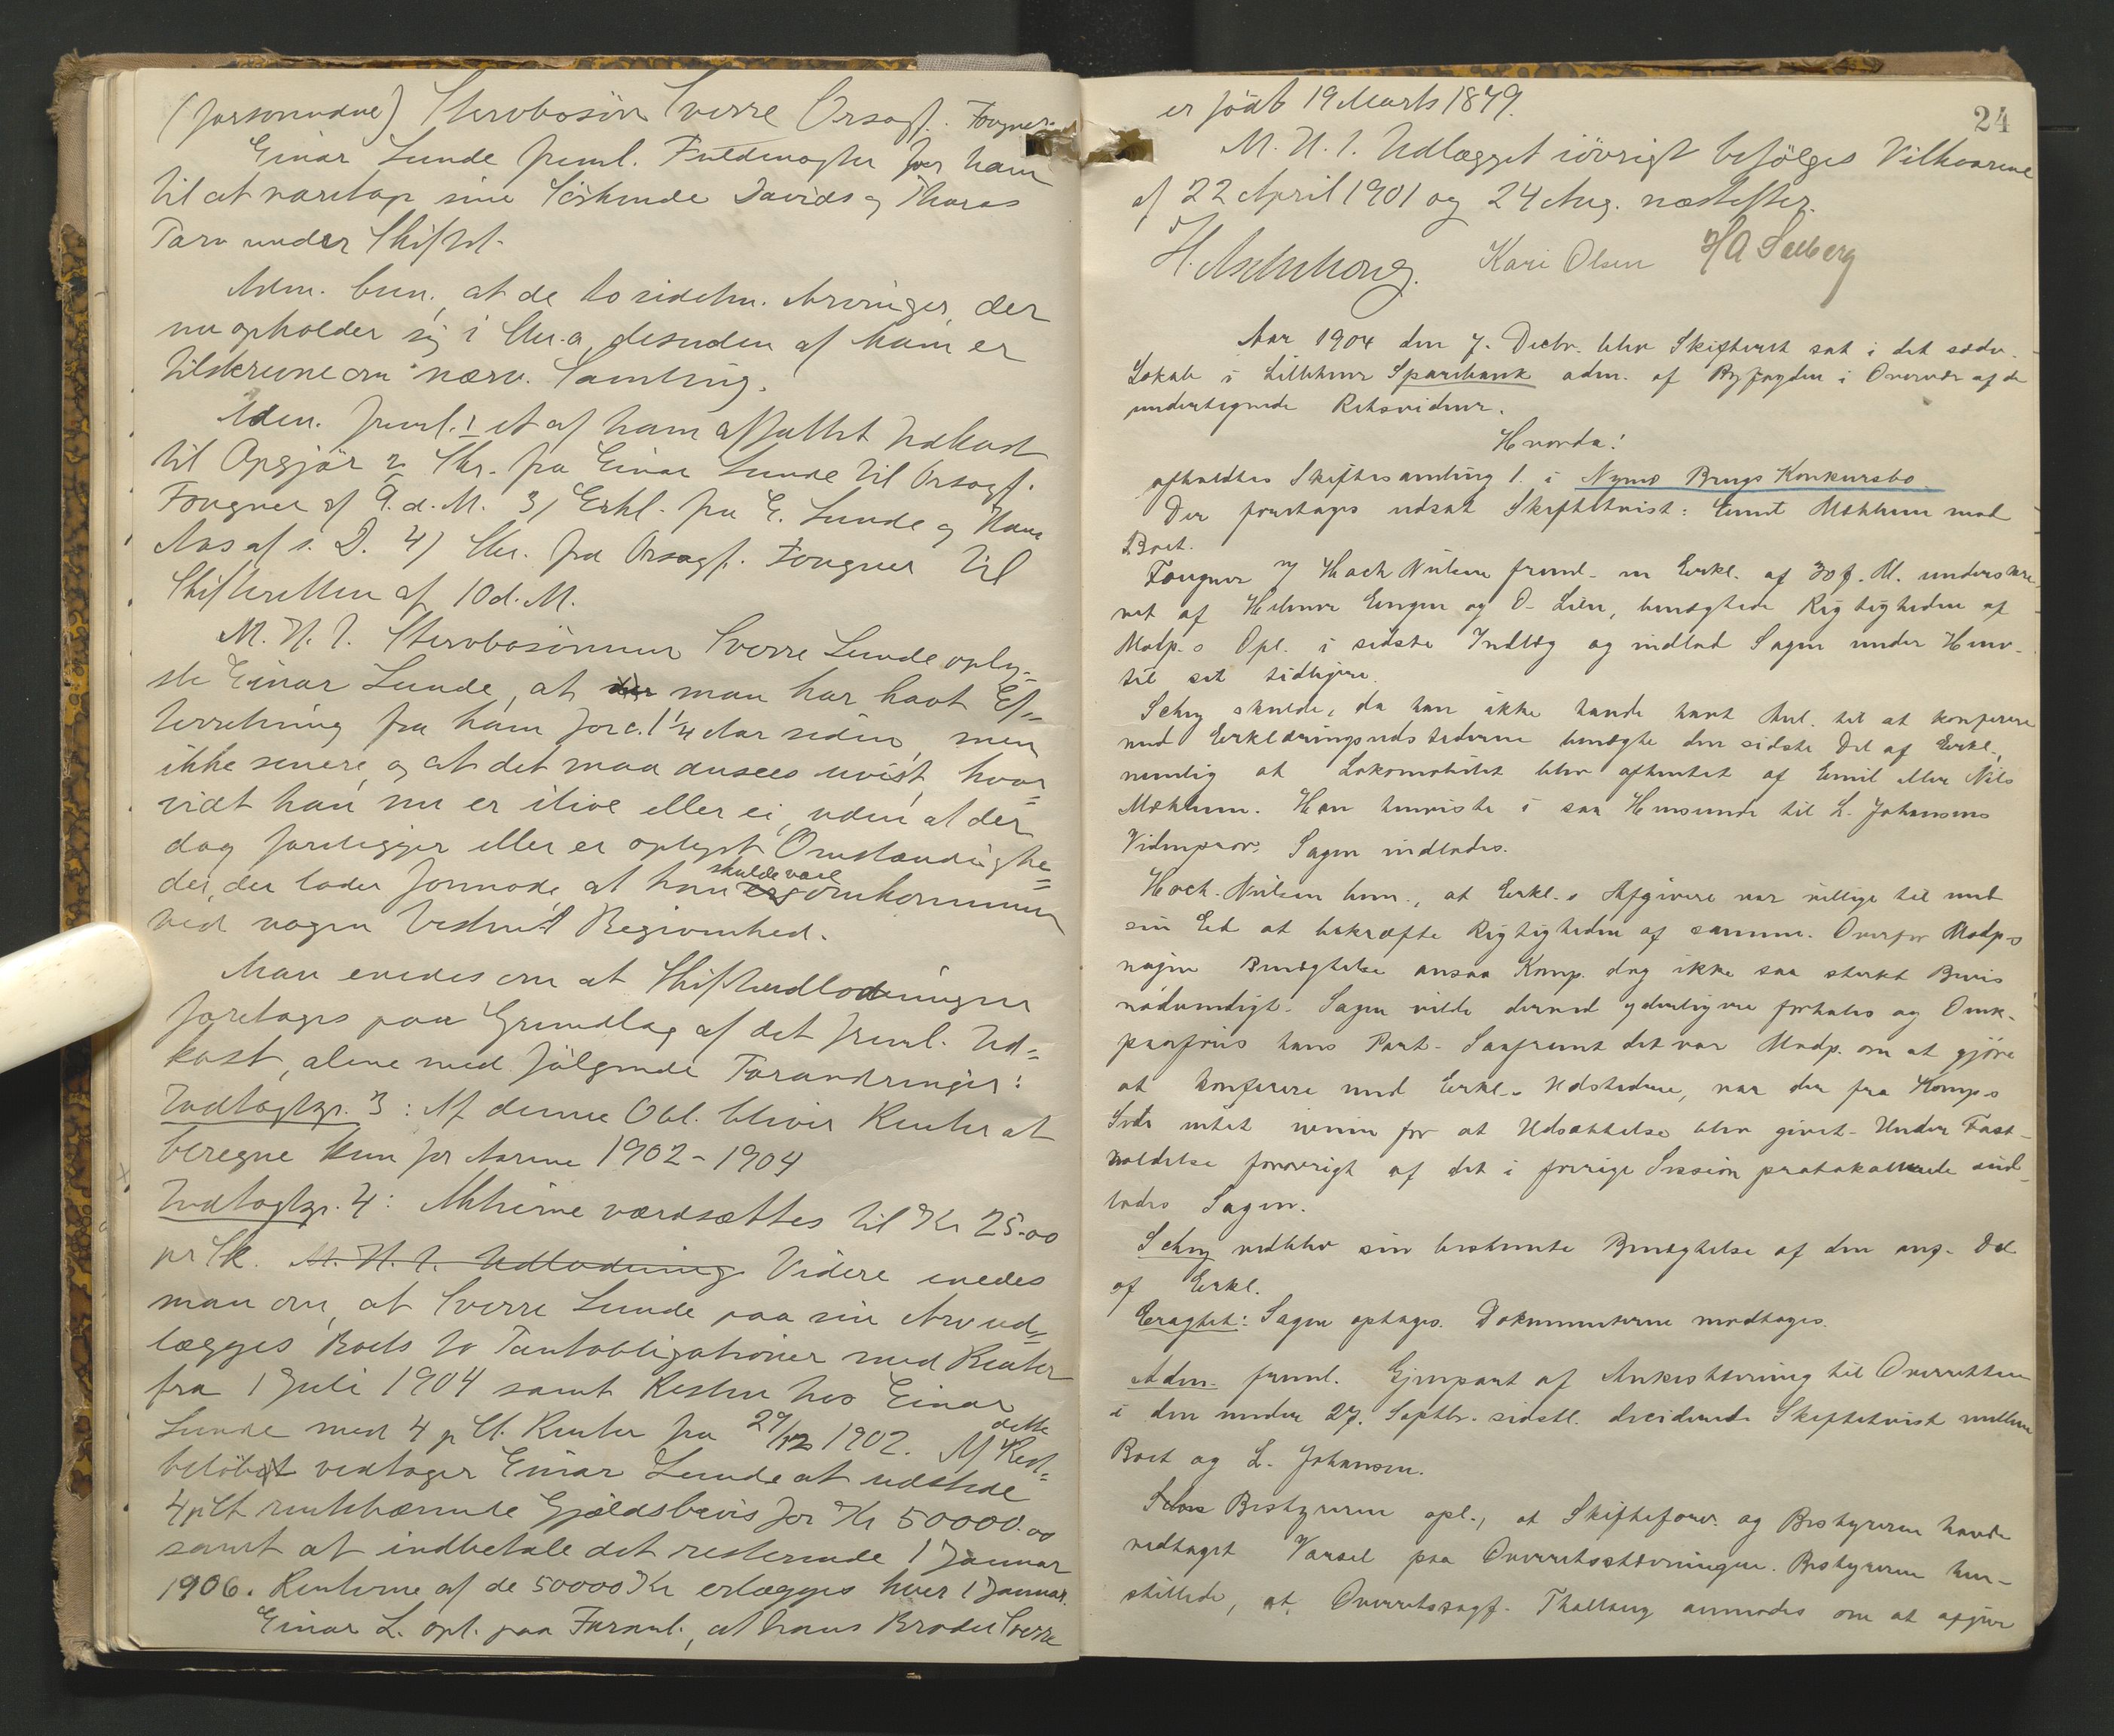 (forsvundne) Stervbosön Sverre Orsagf. Fougner.
Einar Lunde freml. Fuldmagter for ham
til at varetage sine Söskende Davids og Tharas
Tarv under Skiftet.
Adm. bem., at de to sidstn. Arvinger, der
nu opholder sig i Chr.a, desuden af ham er
tilskrevne om nærv. Samling.
Adm. freml. 1 et af ham affattet Udkast
til Opgjör 2 Skr. fra Einar Lunde til Orsagf.
Fougner af 9. d. M. 3) Erkl. fra E. Lunde og Hans
Aas af s. D. 4) Skr. fra Orsagf. Fougner til
Skifteretten af 10 d. M.
M. H. t. Stervbosönnen Sverre Lunde oply=
ste Einar Lunde, at man har havt Ef=
terretning fra ham for c. 1 1/4 Aar siden, men
ikke senere, og at det maa ansees uvist, hvor=
vidt han nu er ilive eller ei, uden at der
dog foreligger eller er oplyst Omstændighe=
der, der lader formode, at han skulde være omkommen
ved nogen bestemt Begivenhed.
Man enedes om at Skifteudlodningen
foretages paa Grundlag af det freml. Ud=
kast, alene med følgende Forandringer:
Indtægtsp. 3: Af denne Obl. bliver Renter at
beregne kun for Aarene 1902-1904
Indtægtsp. 4: Aktierne værdsættes til Kr 25.00
pr Stk. M. H. t. Udlodning Videre enedes
man om, at Sverre Lunde paa sin Arv ud=
lægges Boets to Panteobligationer med Renter
fra 1 Juli 1904 samt Resten hos Einar
Lunde med 4 p Ct. Renter fra 29/12 1902. Af dette Rest=
beløb vedtager Einar Lunde at udstede
4 p Ct rentebærende Gjældsbevis for Kr 50000.00
samt at indbetale det resterende 1 Januar
1906. Renterne af de 50000 Kr erlægges hver 1 Januar.
Einar L. opl. paa Foranl., at hans Broder Sverre
24
er født 19 Marts 1879.
M. H. t. Udlægget iövrigt befölges Vilkaarene
af 22 April 1901 og 24 Aug. næstefter.
Kari Olsen H A Selberg
Aar 1904 den 7. Decbr. blev Skifteret sat i det sædv.
Lokale i Lillehmr Sparebank adm. af Byfogden i Overvær af de
undertegnede Retsvidner.
Hvorda!
afholdtes Skiftesamling 1. i Nymo Brugs Konkursbo.
Der foretages udsat Skiftetvist: Emil Mæhlum mod
Boet.
Fougner v/ Hoch Nielsen freml. en Erkl. af 30 f. M. underskre-
vet af Hilmar Engen og O. Lien, benægtede Rigtigheden af
Modp.s Opl. i sidste Indlæg og indlod Sagen under Henv.
til sit tidligere.
Schey skulde, da han ikke havde havt Anl. til at konferere
med Erklæringsudstederne benægte den sidste Del af Erkl.,
nemlig at Lokomobilet blev afhentet af Emil eller Nils
Mæhlum. Han henviste i saa Henseende til L. Johansens
Vidneprov. Sagen indlodes.
Hoch-Nielsen bem., at Erkl.s Afgivere var villige til med
sin Ed at bekræfte Rigtigheden af samme. Overfor Modp.s
nøgne Benægtelse ansaa Komp. dog ikke saa sterkt Bevis
nødvendigt. Sagen vilde derved yderligere forhales og Omk.
paaføres hans Part. Saafremt det var Modp. om at gjöre
at konferere med Erkl.s Udstedere, var der fra Komp.s
Side intet iveien for at Udsættelse blev givet. Under Fast-
holdelse forøvrigt af det i forrige Session protokollerede ind-
lodes Sagen.
Schey vedblev sin bestemte Benægtelse af den ang. Del
af Erkl.
Eragtet: Sagen optages. Dokumenterne modtages.
Adm. freml. Gjenpart af Ankestævning til Overretten
i den under 27. Septbr. sidstl. deciderede Skiftetvist mellem
Boet og L. Johansen.
Bestyreren opl., at Skifteforv. og Bestyreren havde
vedtaget Varsel paa Overretsstævningen. Bestyreren hen-
stillede, at Overretssagf. Thallaug anmodes om at afgive